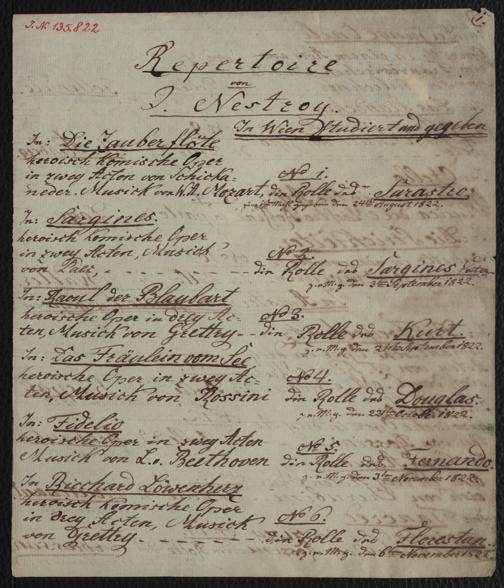 I.N. 135.822
1.
Repertoire
von
J. Nestroy.
In Wien Studiert und gegeben
In: Die Zauberflöte
heroisch komische Oper
in zwey Acten von Schicka-
No 1.
neder. Musick von W. A. Mozart, die Rolle des Sarastro.
z. e. Mahl gegeben den 24ten August 1822.
In: Sargines.
heroisch komische Oper
in zwey Acten, Musick
No 2.
von Paër, - - - - die Rolle des Sargines Vater.
z. e. M. g. den 3ten September 1822.
In: Raoul der Blaubart
heroische Oper in drey Ac-
No 3.
ten, Musick von Grettry - - die Rolle des Kurt.
z. e. M. g. den September 1822.
In: Das Fräulein vom See
heroische Oper in zwey Ac-
No 4.
ten, Musick von Rossini die Rolle des Douglas.
z. e. M. g. den October 1822.
In: Fidelio
heroische Oper in zwey Acten
No 5.
Musick von L. v. Beethoven die Rolle des Fernando
z. e. M. g. den 3ten November 1822.
In Ricchard Löwenherz
heroisch komische Oper
in drey Acten, Musick
No 6.
von Grettry. - - - - die Rolle des Florestan
z. e. M. g. den 6ten November 1822